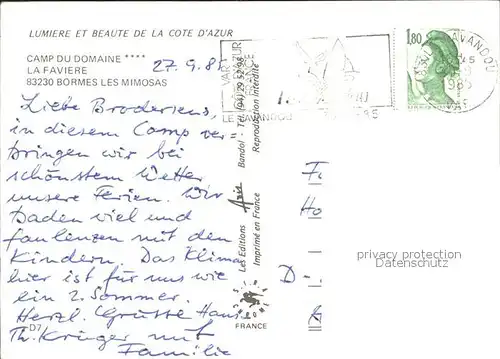 LUMIERE ET BEAUTE DE LA COTE D'AZUR
CAMP DU DOMAINE ****
LA FAVIERE
83230 BORMES LES MIMOSAS
27.9.85
Liebe Brodersens,
in diesem Camp ver=
bringen wir bei
schönstem Wetter
unsere Ferien. Wir
baden viel und
faulenzen mit den
Kindern. Das Klima
hier ist für uns wie
ein 2. Sommer.
Herzl. Grüsse Hans
Th. Krüger mit
Familie
D7
Les Editions Aris Bandol - Tél. (94) 29.52.98
Imprimé en France
Reproduction interdite
FRANCE
VAR
D'AZUR
LE LAVANDOU
1,80
LAVANDOU
1985
VAR
Ho
D-
privacy protection
Datenschutz